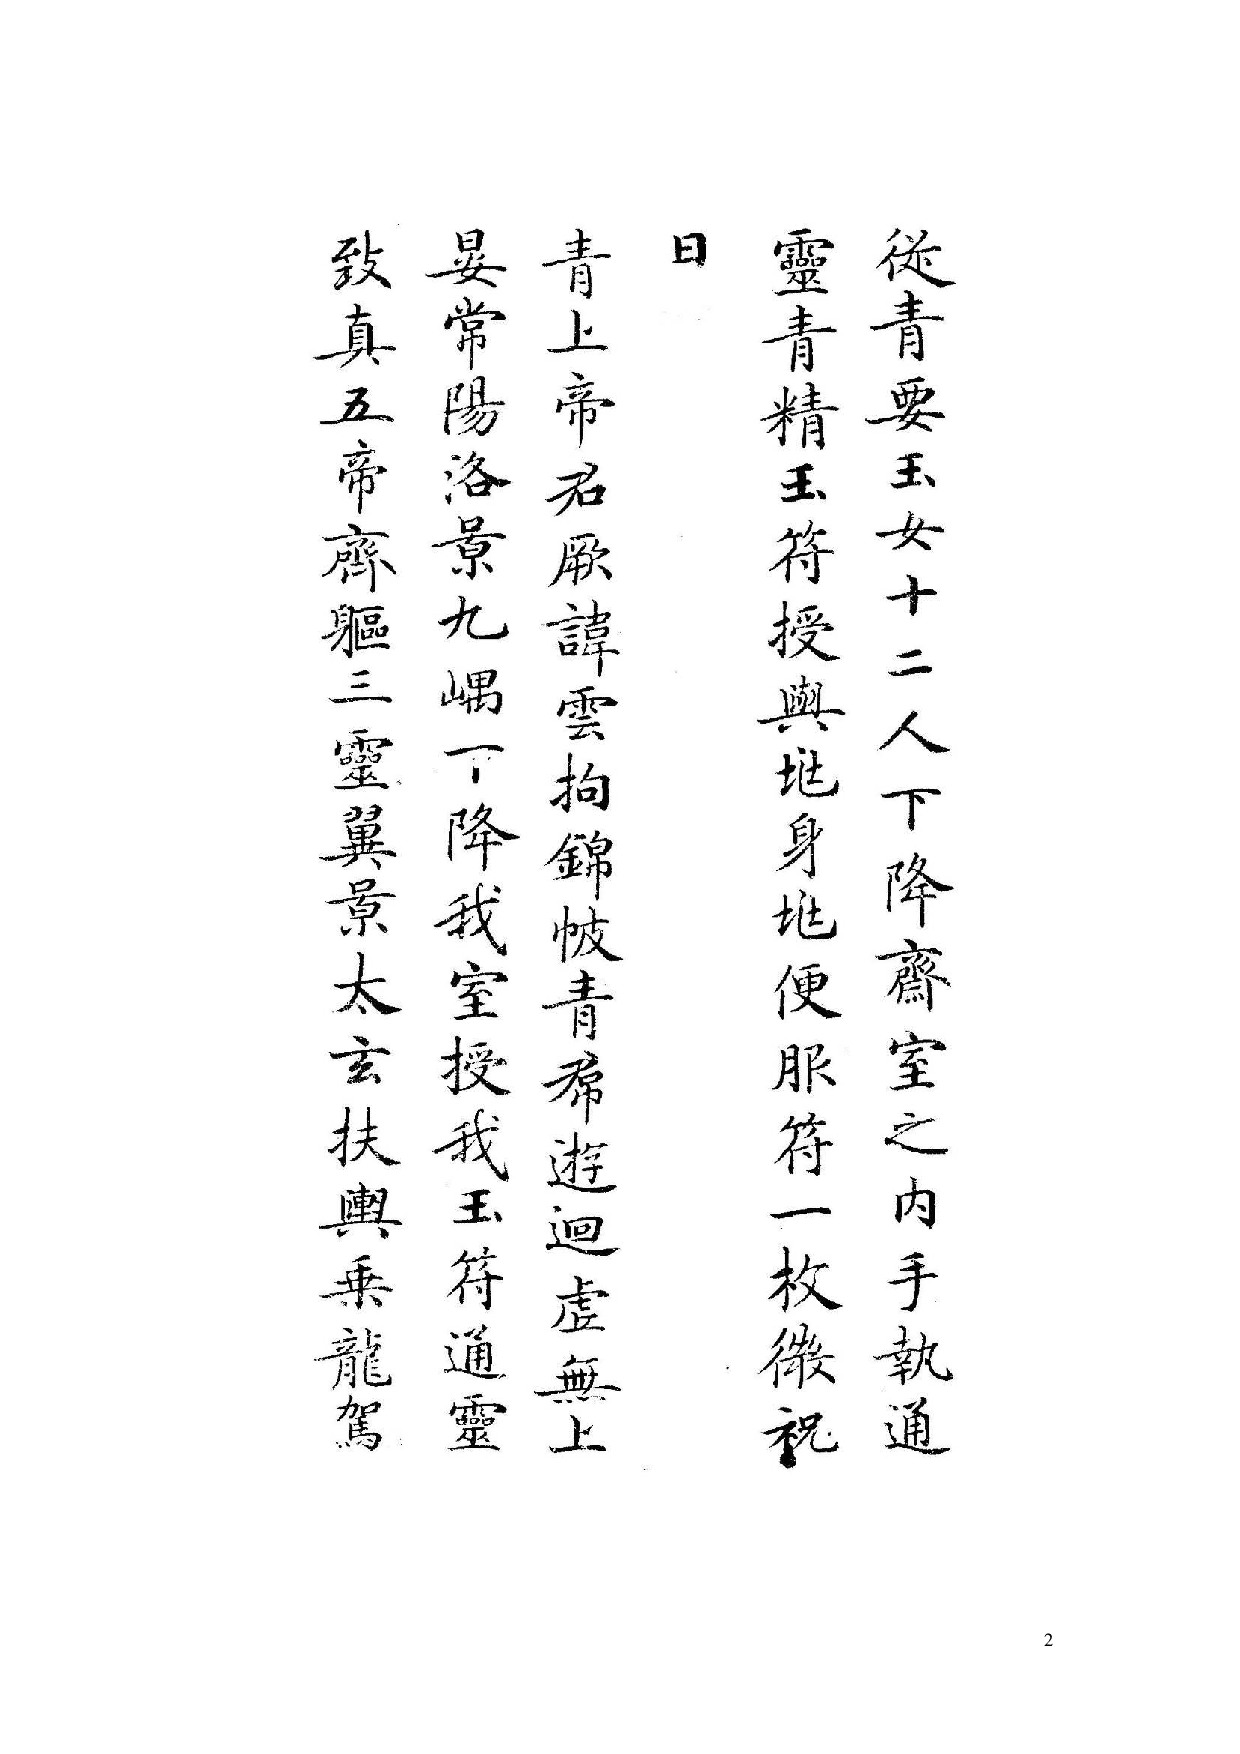 從青要玉女十二人下降齋室之內手執通
靈青精玉符授與兆身兆便服符一枚微祝
曰
青上帝君厥諱雲拘錦帔青帬遊迴虛無上
晏常陽洛景九嵎下降我室授我玉符通靈
致真五帝齊軀三靈翼景太玄扶輿乘龍駕
2